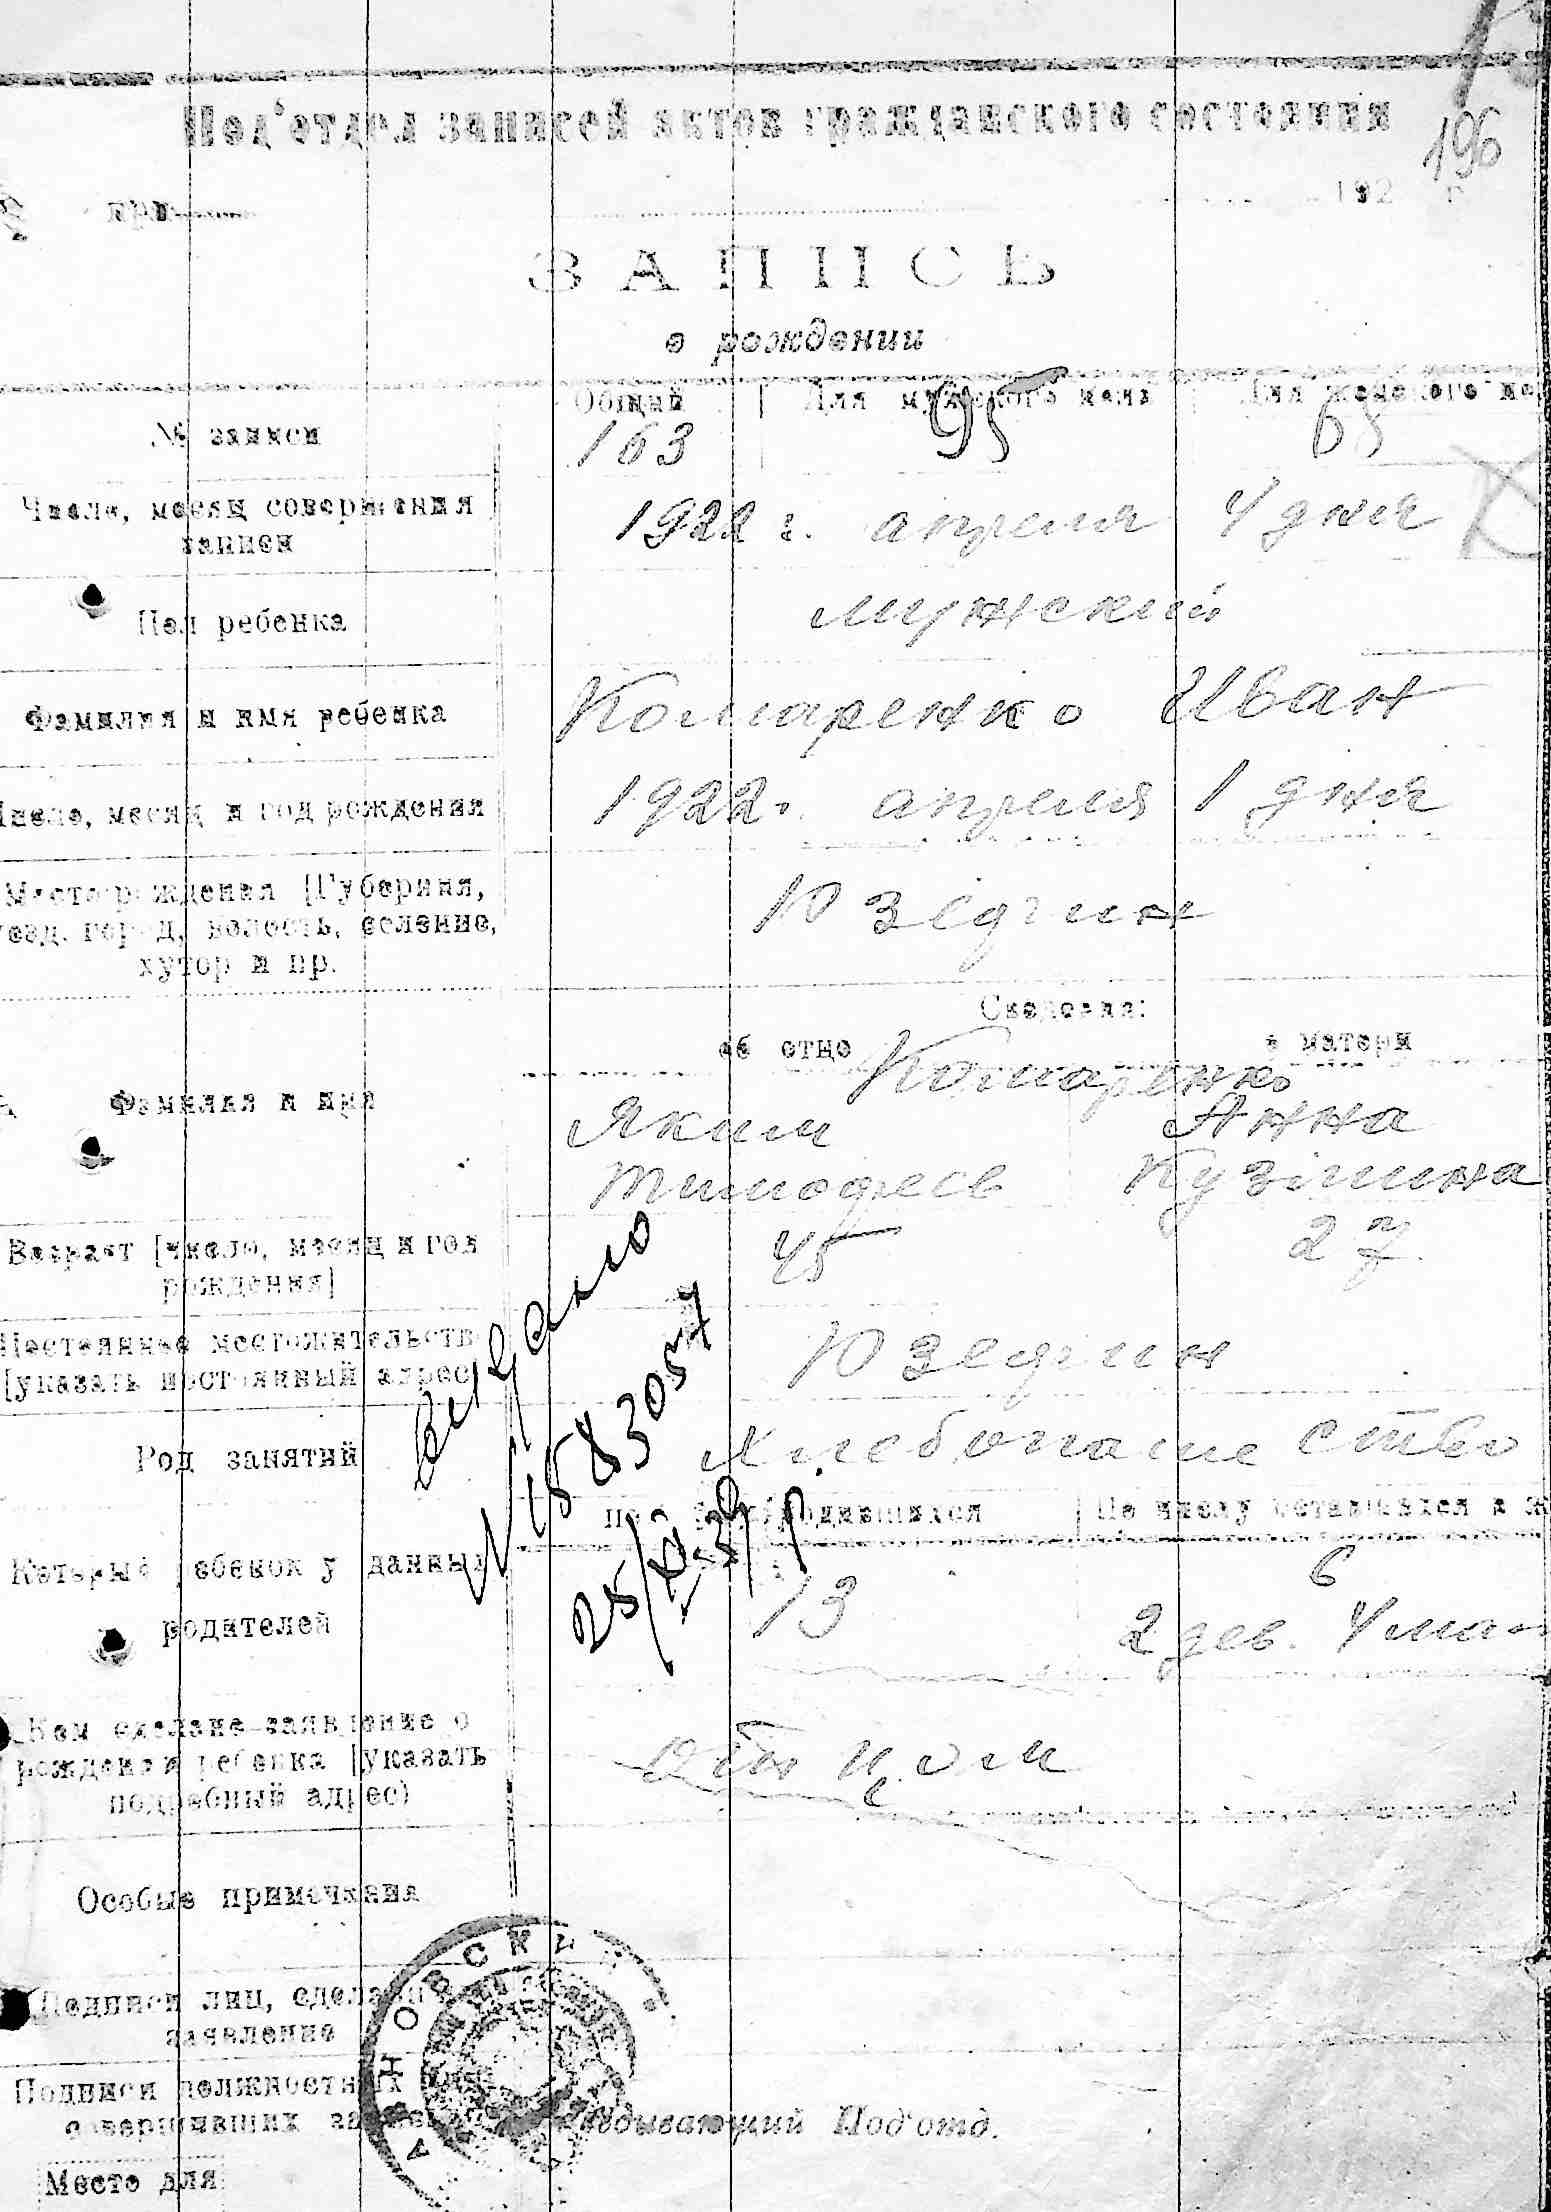 196
Под'отдел записей актов гражданского состояния
192 г
ЗАПИСЬ
о рождении
№ записи
Общий
Для мужского пола
Для женского по
163
95
68
Число, месяц совершения
записи
1922 г. апреля 4 дня
Пол ребенка
мужский
Фамилия и имя ребенка
Комаренко Иван
Число, месяц и год рождения
1922 г. апреля 1 дня
Место рождения [Губерния,
уезд, город, волость, селение,
хутор и пр.
Юзедгин
Сведения:
об отце
о матери
Комаренко
Фамилия и имя
Яким
Анна
Тимофеев
Кузьмина
Возраст [число, месяц и год
рождения]
45
27
Постоянное местожительств
[указать постоянный адрес
Юзедгин
Род занятий
Хлебопашество
Выдано
N 1583057
По числу оставшихся в ж
родившихся
Который ребенок у данных
родителей
13
6
2 дев. 4 мал
Кем сделано заявление о
рождении ребенка [указать
подробный адрес)
Отцом
Особые примечания
Подписи лиц, сдела
заявление
Подписи должностных
совершивших за
Под'отд.
Место для